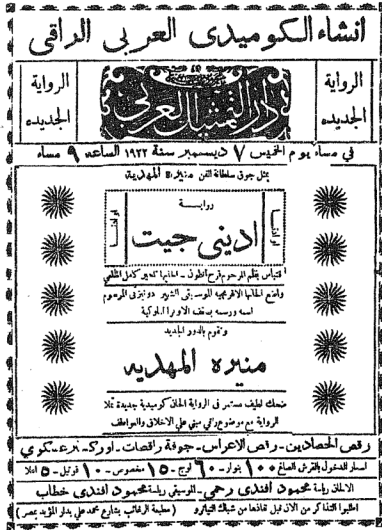 انشاء الكوميدى العربى الراقى
الرواية الجديده
دار التمثيل العربى
الرواية الجديده
فى مساء يوم الخميس ٧ ديسمبر سنة ١٩٢٢ الساعه ٩ مساء
يمثل جوق سلطانة الفن منيرة المهدية
رواية
ادينى جيت
اقتباس بقلم المرحوم فرح انطون - الحانها كامل الخلعى
واضع الحانها الافرنجيه الموسيقى الشهير دونيزتى المرسوم
اسمه ورسمه بسقف الاوبرا الملوكية
وتقوم بالدور الجديد
منيره المهديه
ضحك لطيف مستمر فى الرواية الحان كوميدية جديدة
الرواية ذو موضوع راقى مبنى على الاخلاق والعواطف
رقص الحصادين - رقص الاعراس - جوقة راقصات - اوركـ
اسعار الدخول بالقرش الصاغ ١٠٠ بنوار - ٦٠ لوج - ١٥ مخصوص - ١٠ فوتيل - ٥ اعلا
الالحان رياسة محمود أفندى رحمى - الموسيقى رياسة محمود أفندى خطاب
اطلبوا التذاكر من الان قبل نفاذها من شباك التياترو (مطبعة الرغائب بشارع محمد على بدار المؤيد بمصر)